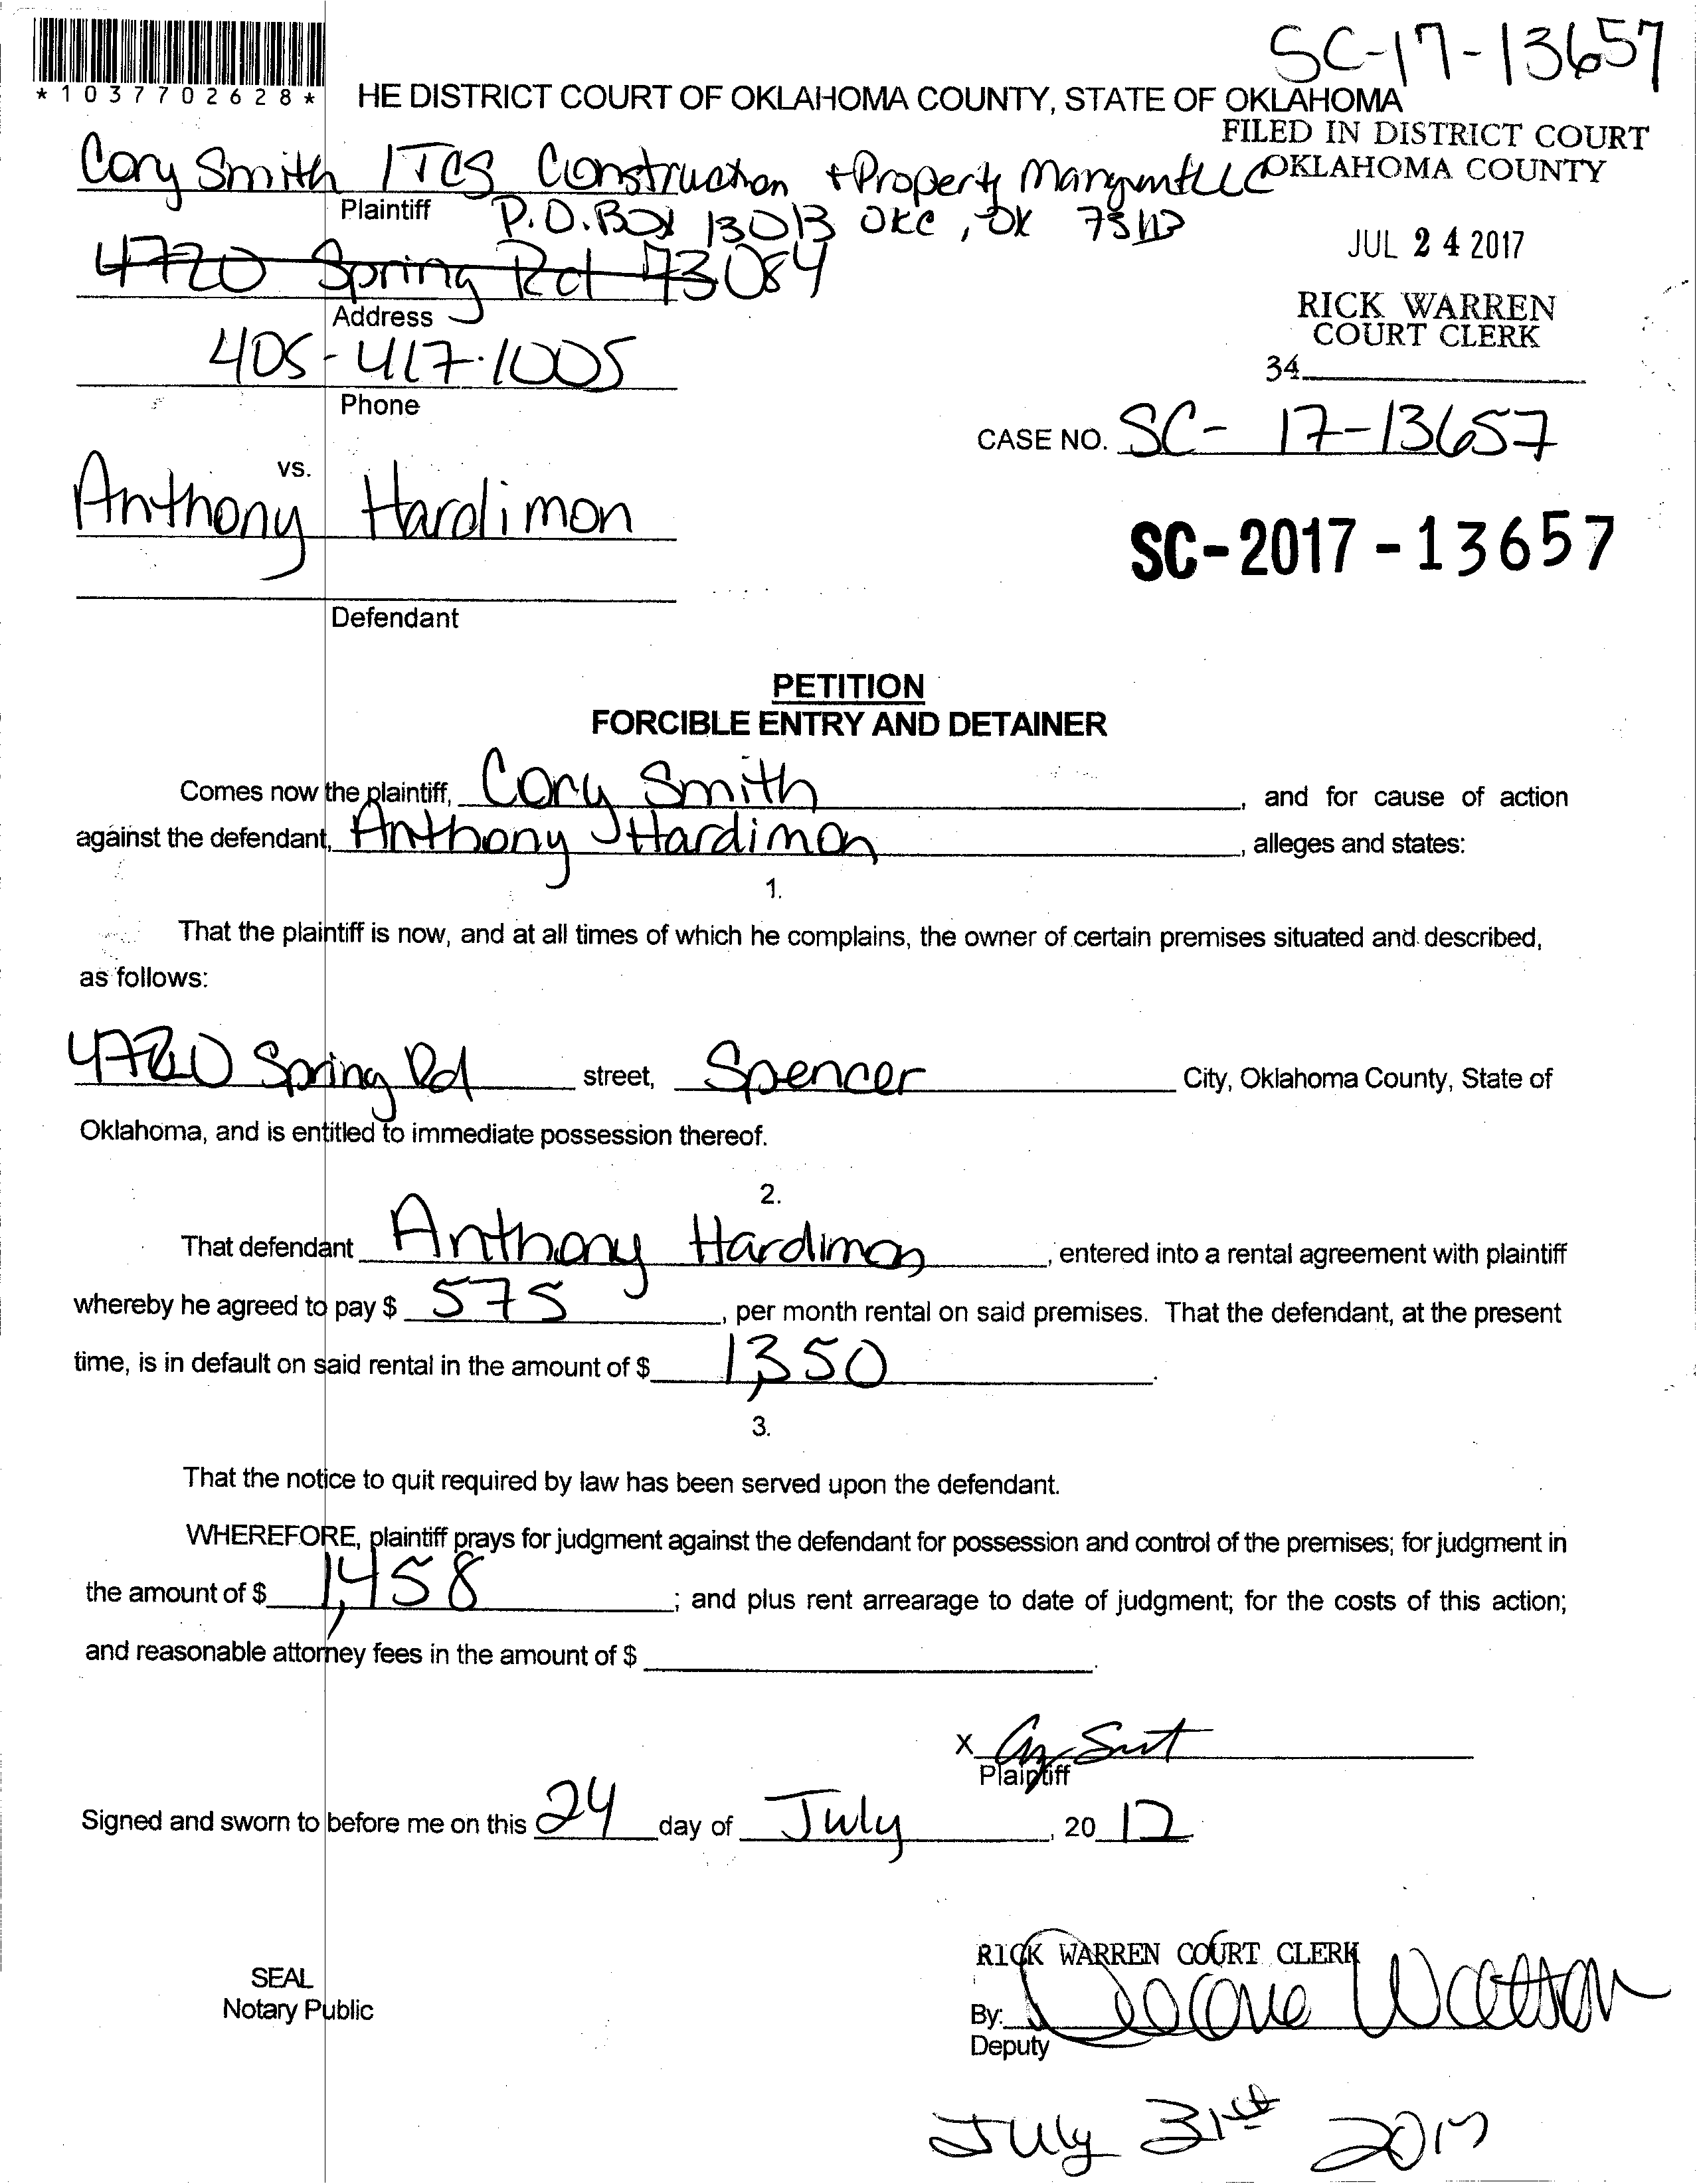 SC-17-13657
*1037702628*
HE DISTRICT COURT OF OKLAHOMA COUNTY, STATE OF OKLAHOMA
FILED IN DISTRICT COURT
OKLAHOMA COUNTY
Cory Smith / TCS Construction + Property LLC
Plaintiff
P.O. Box 13013 OKC, OK 73113
4720 Spring Rd 73084
Address
JUL 24 2017
RICK WARREN
COURT CLERK
34
405-417-1005
Phone
CASE NO. SC- 17-13657
vs.
Anthony Hardimon
SC-2017-13657
Defendant
PETITION
FORCIBLE ENTRY AND DETAINER
Comes now the plaintiff, Cory Smith, and for cause of action
against the defendant, Anthony Hardimon, alleges and states:
1.
That the plaintiff is now, and at all times of which he complains, the owner of certain premises situated and described,
as follows:
4720 Spring Rd street, Spencer City, Oklahoma County, State of
Oklahoma, and is entitled to immediate possession thereof.
2.
That defendant Anthony Hardimon, entered into a rental agreement with plaintiff
whereby he agreed to pay $ 575, per month rental on said premises. That the defendant, at the present
time, is in default on said rental in the amount of $ 1,350.
3.
That the notice to quit required by law has been served upon the defendant.
WHEREFORE, plaintiff prays for judgment against the defendant for possession and control of the premises; for judgment in
the amount of $ 1,458; and plus rent arrearage to date of judgment; for the costs of this action;
and reasonable attorney fees in the amount of $
X
Plaintiff
Signed and sworn to before me on this 24 day of July, 2017
RICK WARREN COURT CLERK
SEAL
Notary Public
By: Watson
Deputy
July 31st 2017